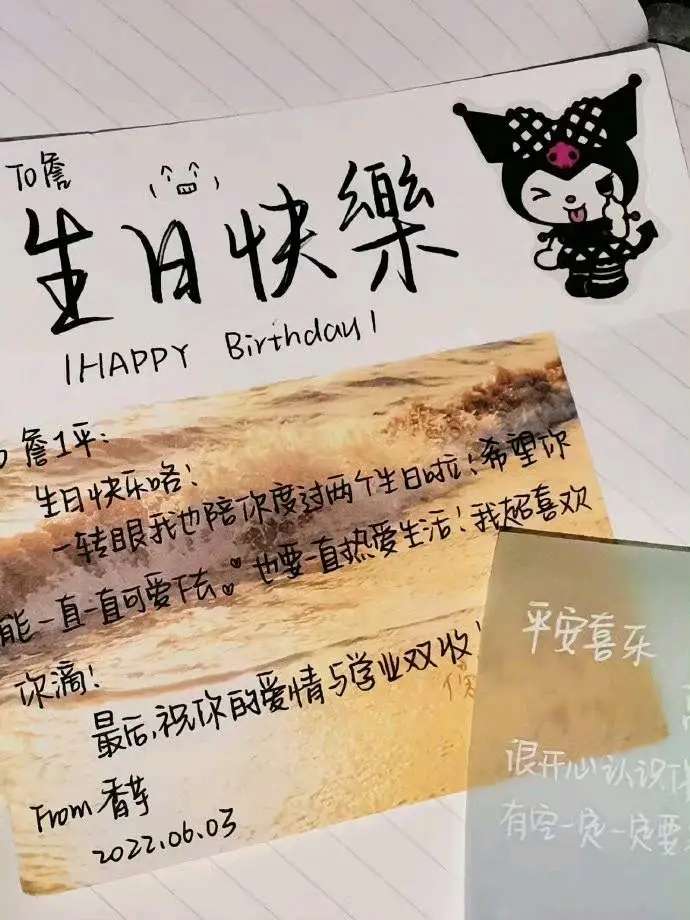 To 詹
生日快樂
HAPPY Birthday
詹1平:
生日快乐咯!
一转眼我也陪你度过两个生日啦!希望你
能一直一直可爱下去。也要一直热爱生活!我超喜欢
你滴!
最后,祝你的爱情与学业双收!
From 香芋
2022.06.03
平安喜乐
很开心认识
有空一定一定要